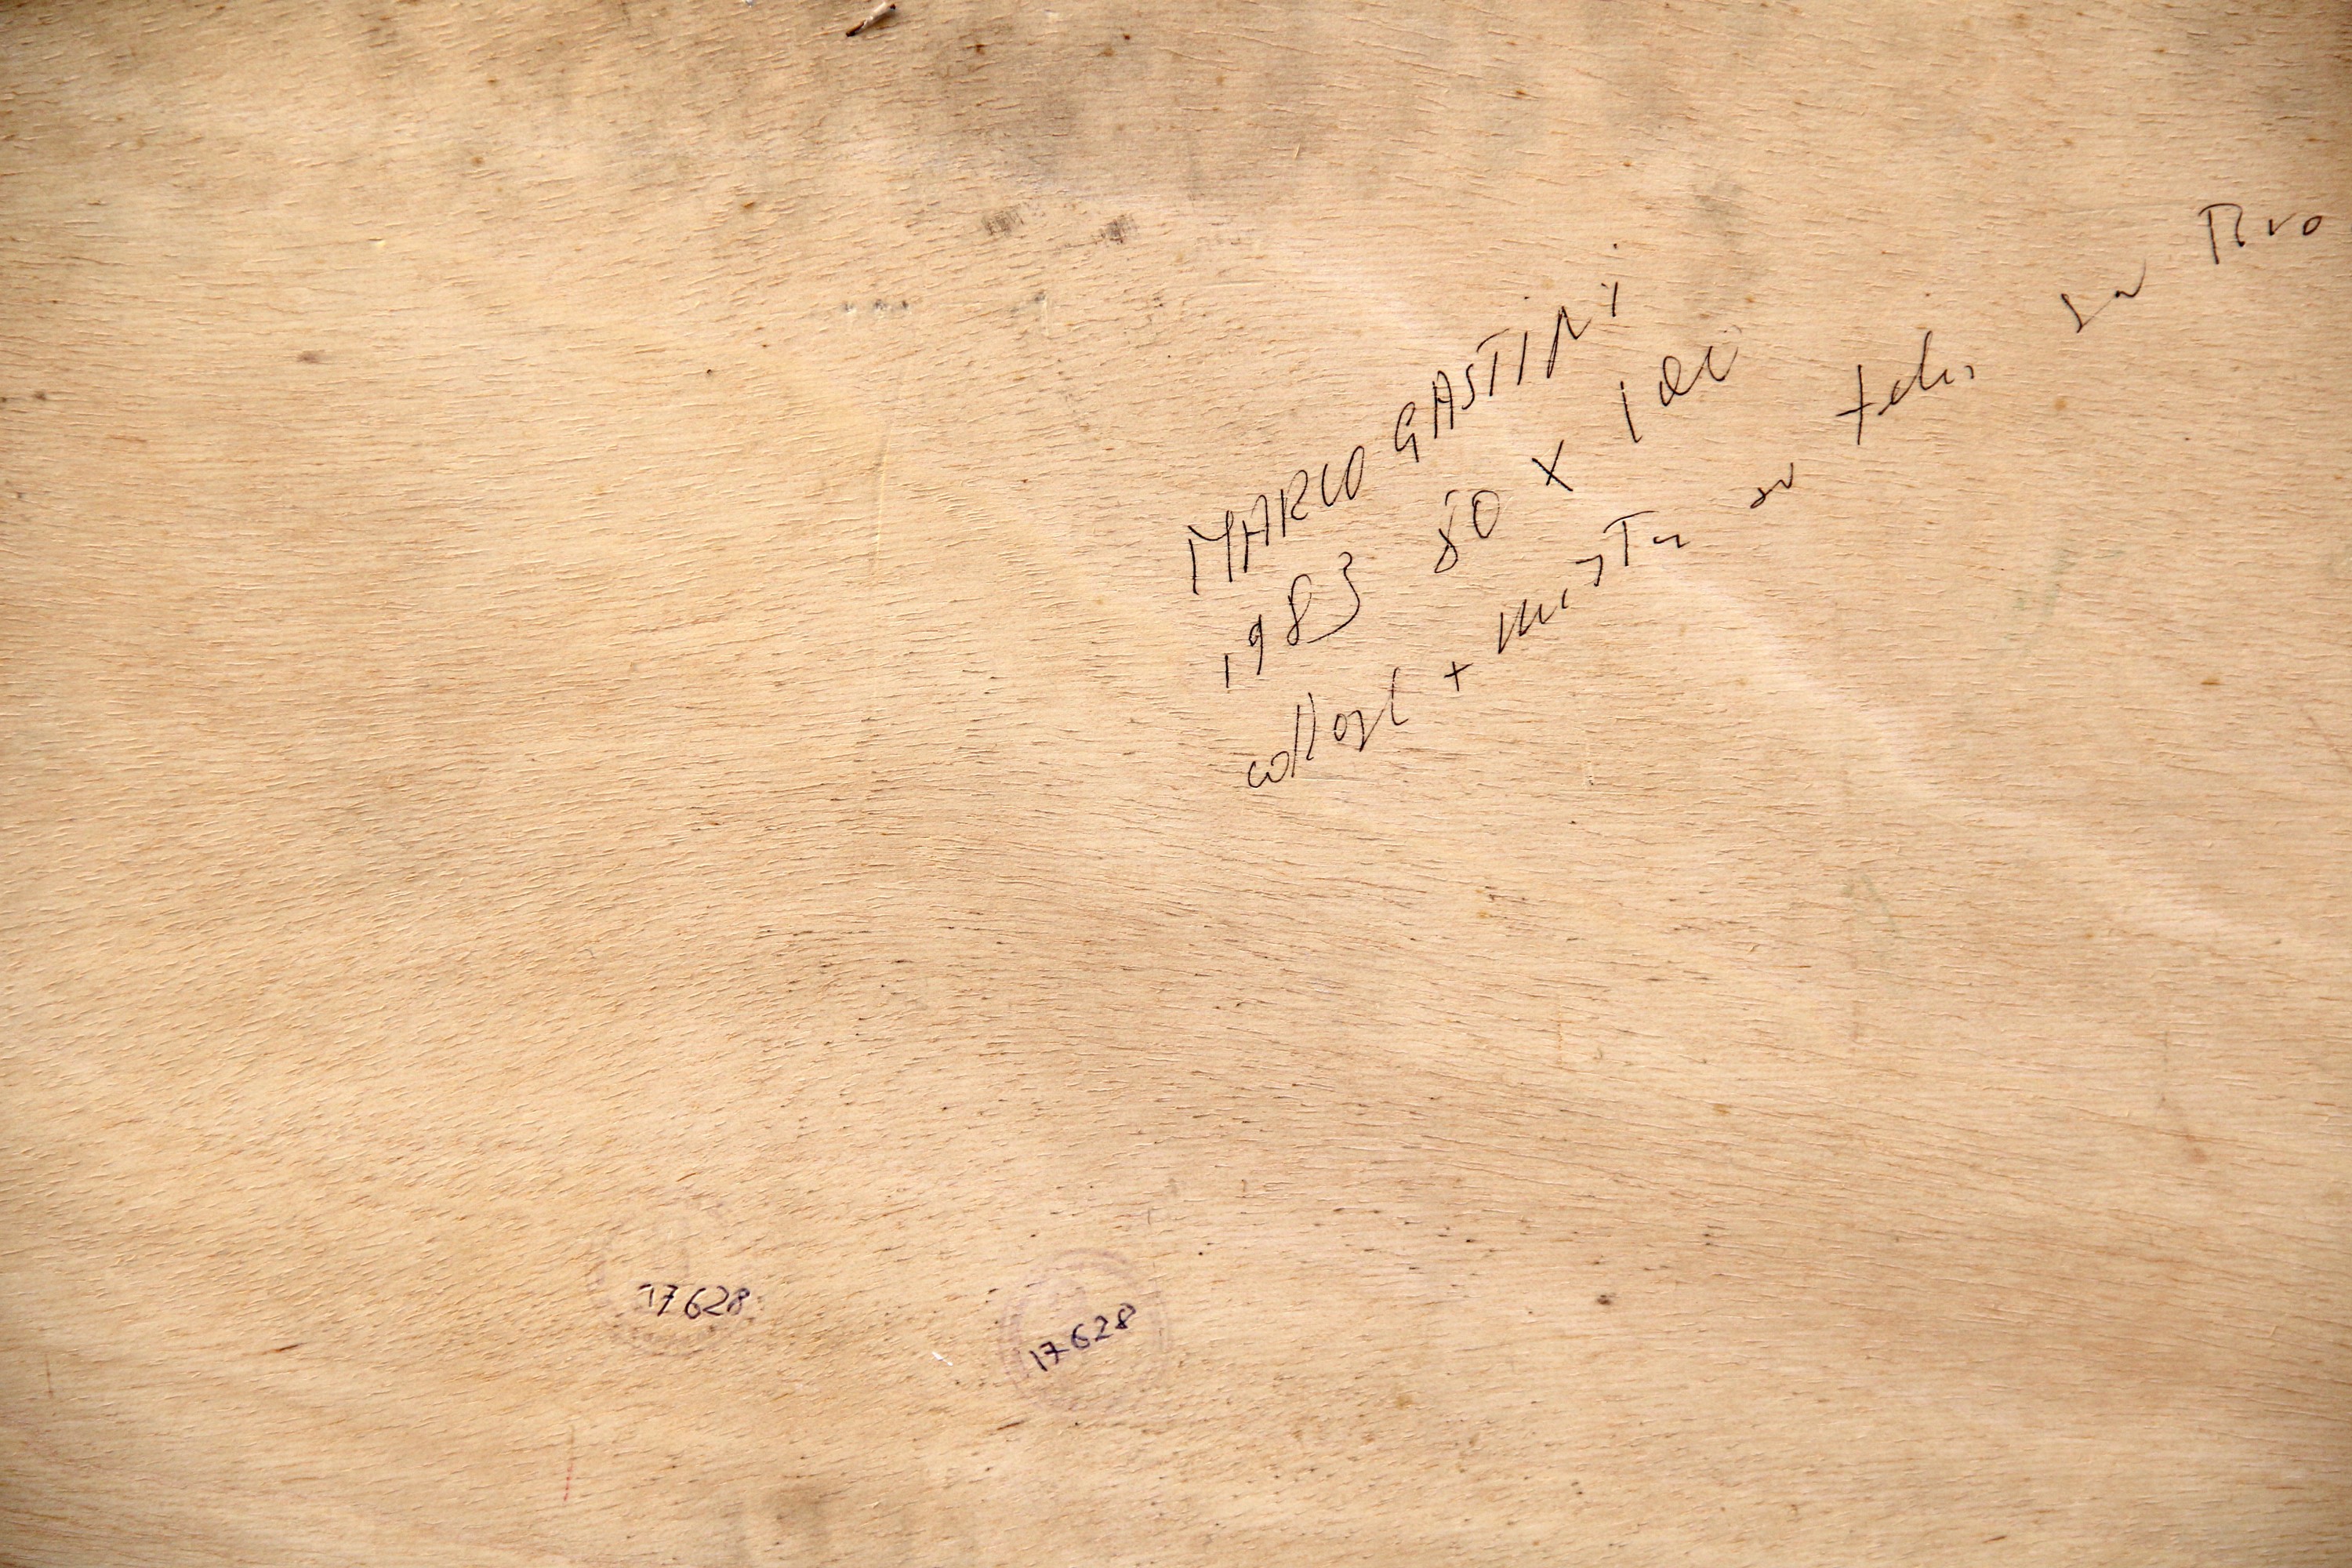 MARCO GASTINI
1983 80 X 100
collage + mista su tela su
17628
17628